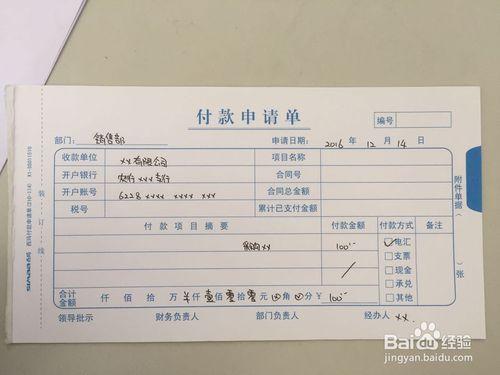 付款申请单
编号
部门：销售部 申请日期：2016 年 12 月 14 日
收款单位 xx有限公司 项目名称
开户银行 农行xxx支行 合同号
开户账号 6228 xxxx xxxx xxx 合同总金额
税号 累计已支付金额
付款项目摘要 付款金额 付款方式 备注
采购xx 100 电汇
支票
现金
承兑
其他
合计金额 仟 佰 拾 万 仟 壹佰 零拾 零元 角 分 ¥ 100
领导批示 财务负责人 部门负责人 经办人 xx.
附件单据（ ）张
装订线
西玛付款申请单(210-114) X1-00011510
SIMAA
Baidu经验
jingyan.baidu.com